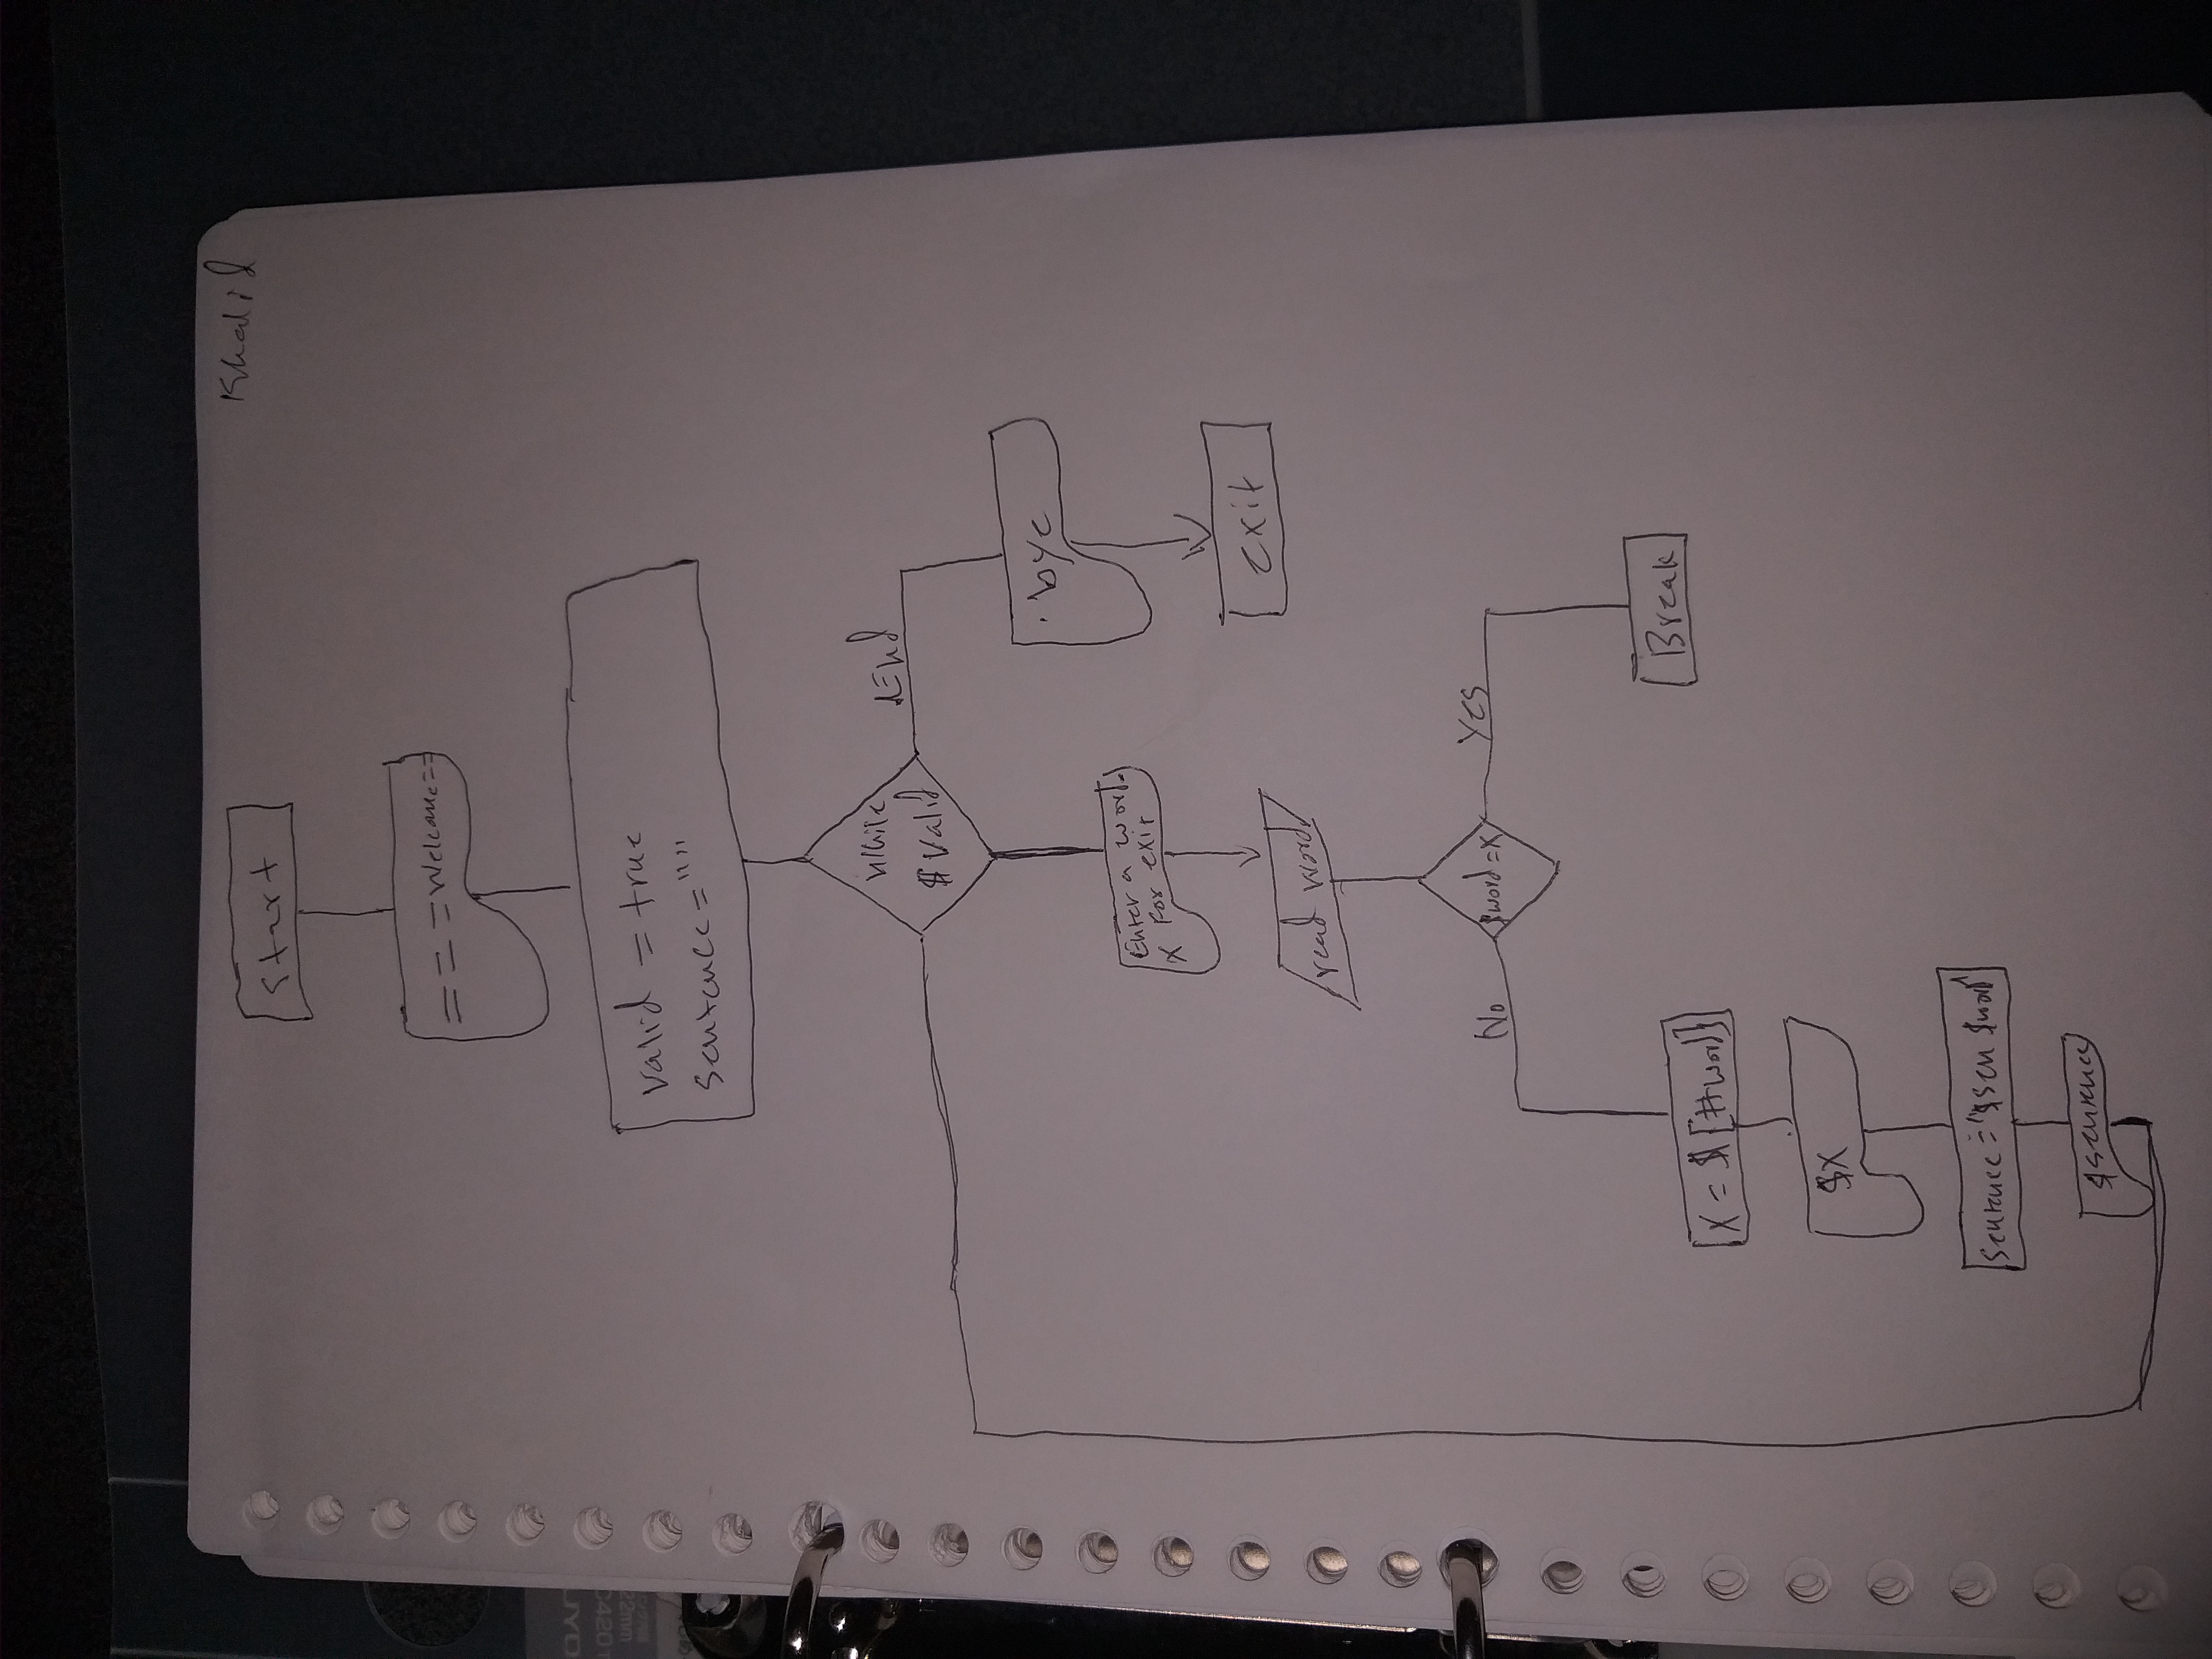 Khalid
Start
=== Welcome ==
Valid = true
Sentence = ""
while
$ Valid
End
bye
exit
Enter a word.
X For exit
read word
$word = X
No
Yes
Break
X = $ [#word]
$X
Sentence = "$sen $word"
$sentence